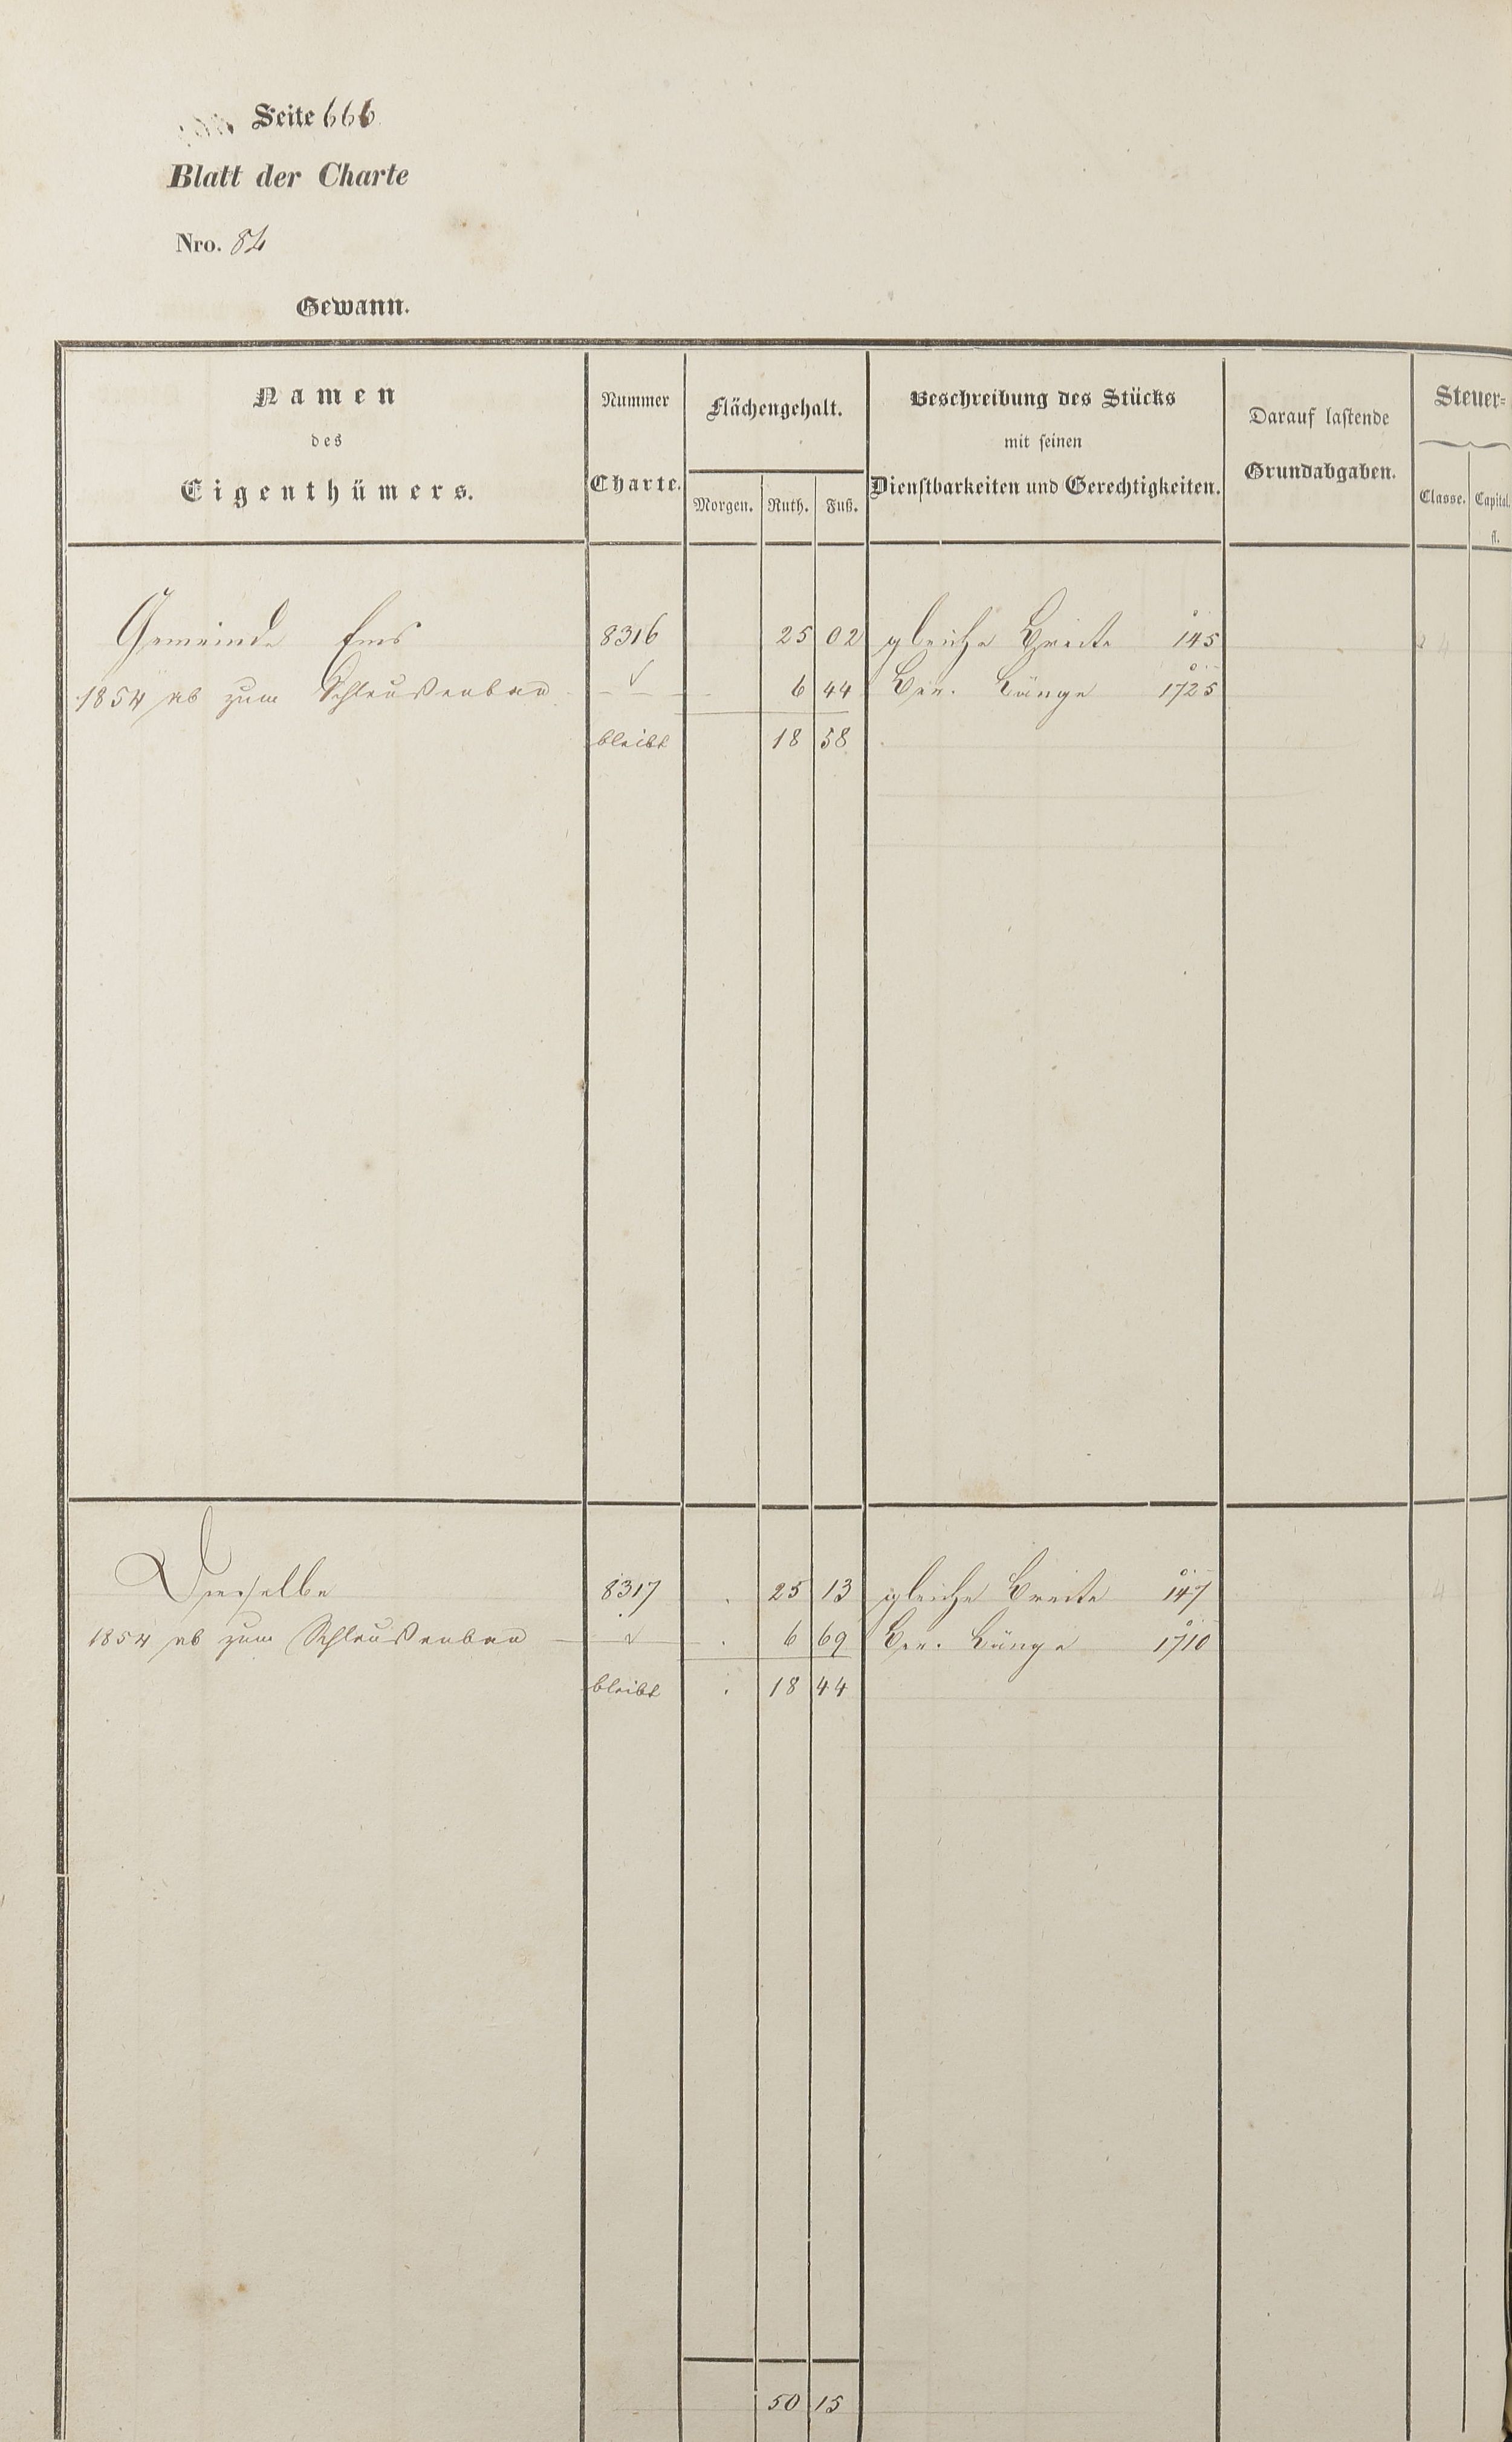 Seite 666
Blatt der Charte
Nro. 84
Gewann.
Namen
des
Eigenthümers.
Nummer
Charte.
Flächengehalt.
Morgen. Ruth. Fuß.
Beschreibung des Stücks
mit seinen
Dienstbarkeiten und Gerechtigkeiten.
Darauf lastende
Grundabgaben.
Steuer=
Classe. Capital.
fl.
Gemeinde Ems 8316 25 02 gleiche Breite 145
1854 ab zum Schleußenbau 6 44 Ber. Länge 1725
bleibt 18 58
Dieselbe 8317 25 13 gleiche Breite 147
1854 ab zum Schleußenbau 6 69 Ber. Länge 1710
bleibt 18 44
50 15